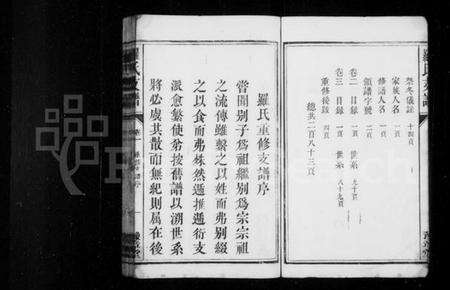 祭冬儀註 十四頁
家族人名 一頁
修譜人名 一頁
領譜字號 二頁
卷二 目錄 一頁 世系 九十頁
卷三 目錄 一頁 世系 八十九頁
重修後跋 四頁
總共二百八十三頁
羅氏重修支譜序
嘗聞別子為祖繼別為宗宗祖
之流傳雖繫之以姓而弗別綴
之以食而弗殊然遞推遞衍支
派愈繁使勿按舊譜以溯世系
將必虞其散而無紀則屬在後